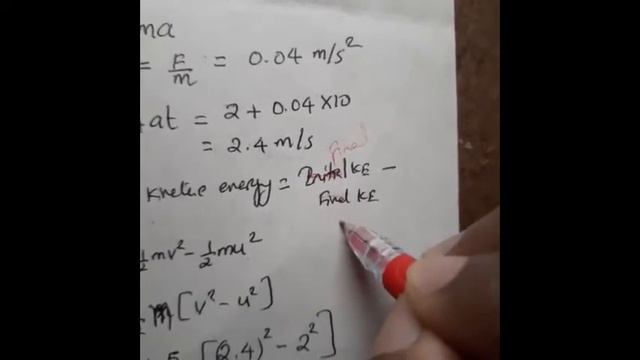 ma
= F/m = 0.04 m/s²
at = 2 + 0.04×10
= 2.4 m/s
Final
Kinetic energy = Initial KE –
Final KE
½mv² – ½mu²
m[v² – u²]
[(2.4)² – 2²]